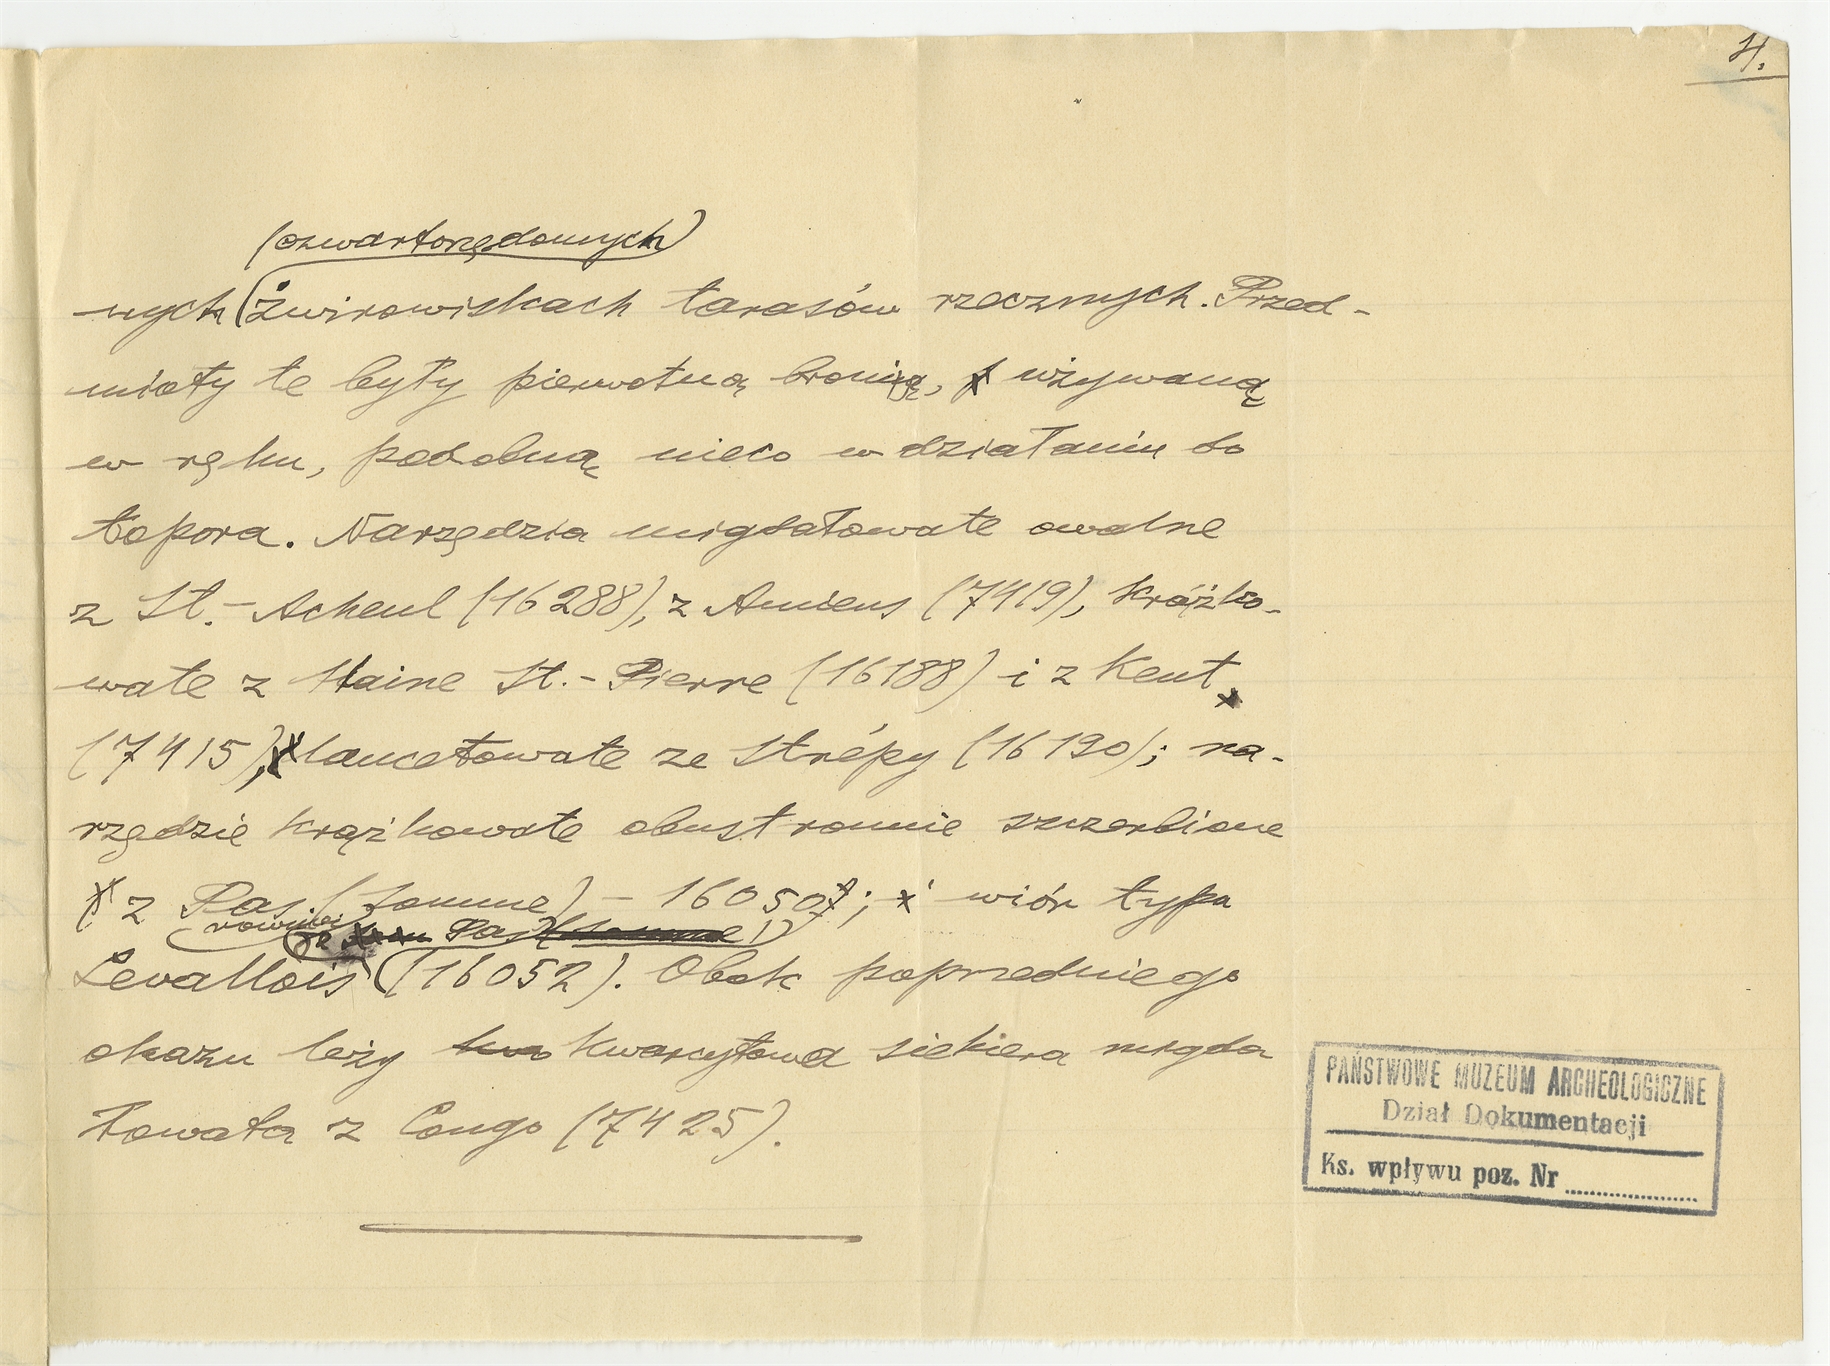 4.
(czwartorzędowych)
nych żwirowiskach tarasów rzecznych. Przed-
mioty te były pierwotną bronią, używaną
w ręku, podobną nieco w działaniu do
topora. Narzędzia migdałowate owalne
z St.-Acheul (16288), z Amiens (7419), krążko-
wate z Haine St.-Pierre (16188) i z Kent
(7415), lancetowate ze Strépy (16190); na-
rzędzie krążkowate obustronnie szczerbione
z Pas (Somme) – 16050; i wiór typu
również z Pas
Levallois (16052). Obok poprzedniego
okazu leży kwarcytowa siekiera migda
łowata z Congo (7425).
PAŃSTWOWE MUZEUM ARCHEOLOGICZNE
Dział Dokumentacji
Ks. wpływu poz. Nr ....................